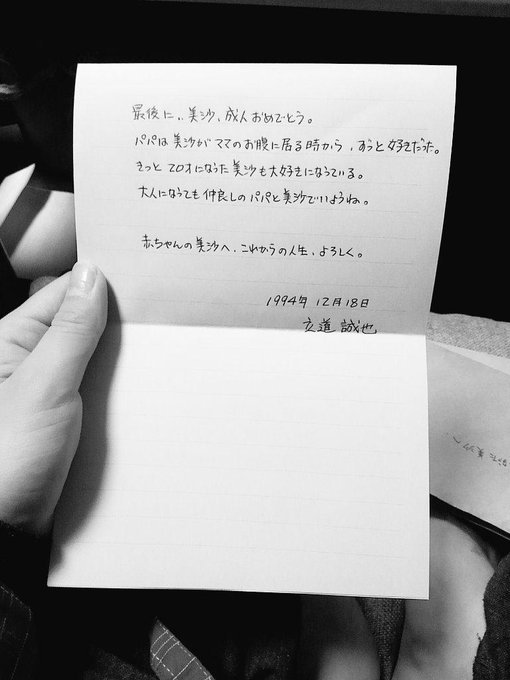 最後に、美沙、成人おめでとう。
パパは美沙がママのお腹に居る時から、ずっと好きだった。
きっと20才になった美沙も大好きになっている。
大人になっても仲良しのパパと美沙でいようね。
赤ちゃんの美沙へ、これからの人生、よろしく。
1994年 12月18日
立道 誠也
なった美沙へ